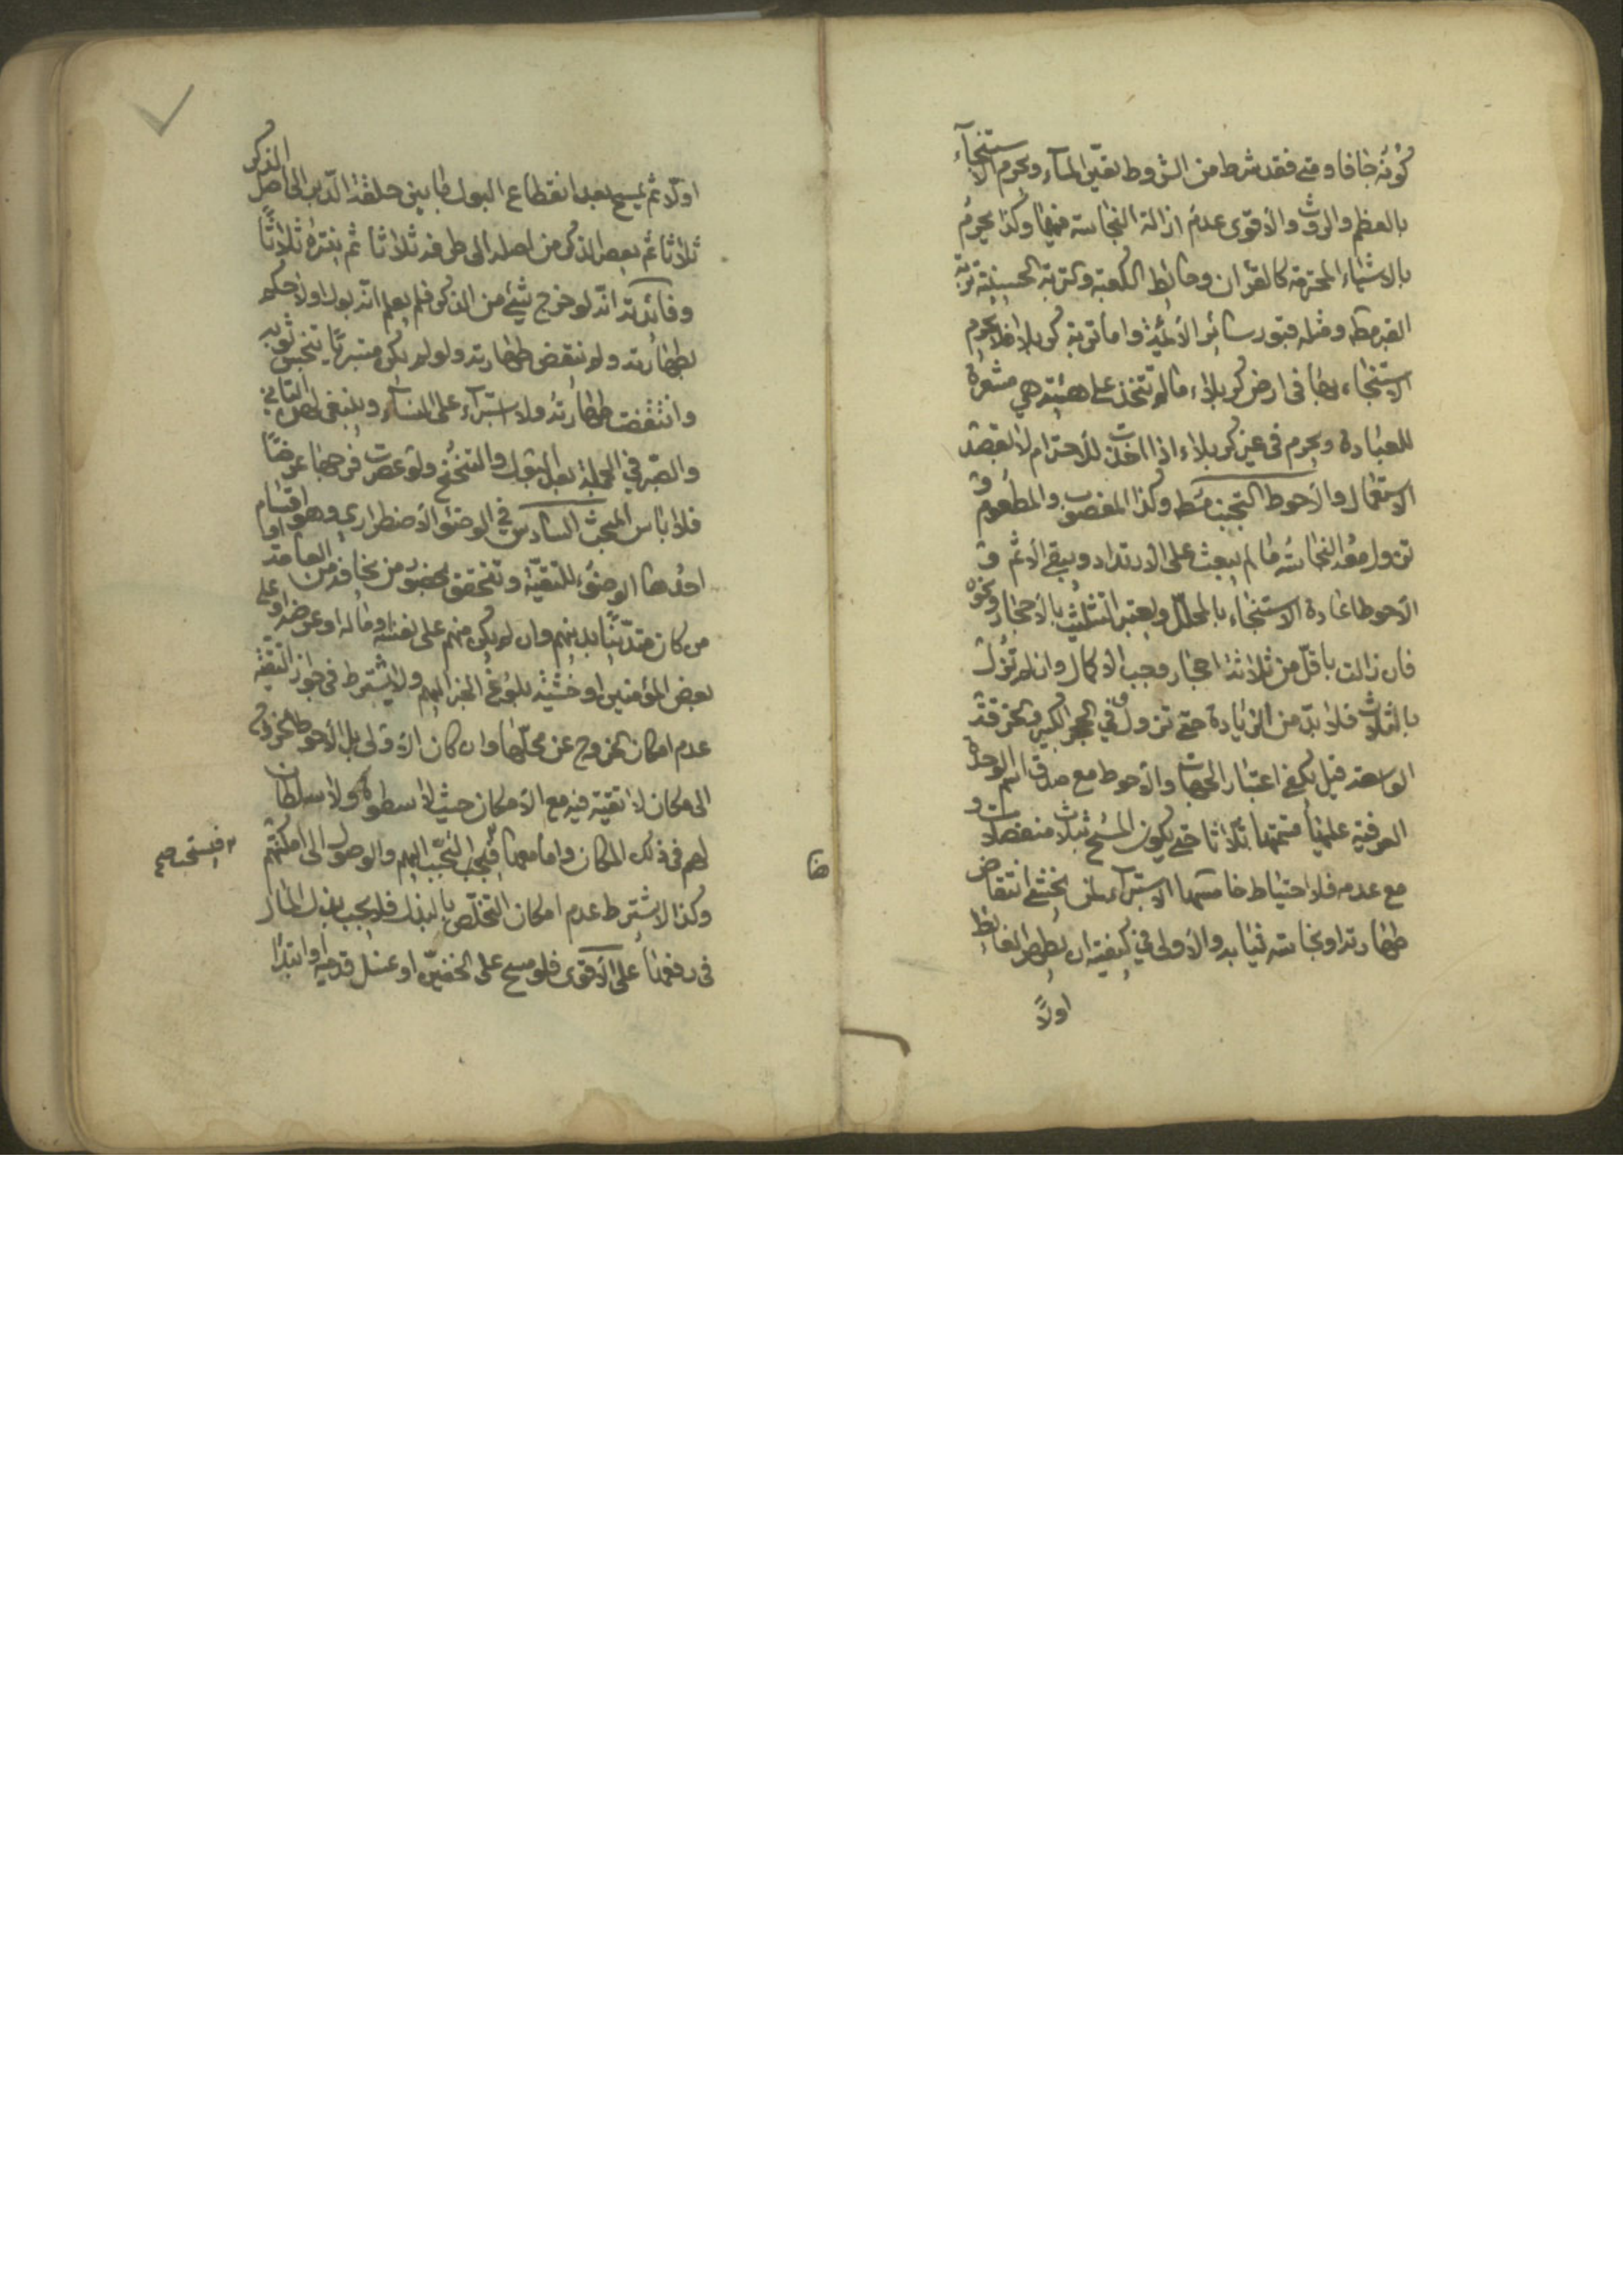 كونه جافا ومتى فقد شرط من الشروط تعيّن المآء ويحرم الاستنجآء
بالعظم والروث والأقوى عدم ازالة النجاسة فيهما وكذا يحرم
بالاشياء المحترمة كالقرآن وحائط الكعبة والتربة الحسينية تربة
القبر مط ومثله قبور سائر الأئمة واما تربة كربلا فلا يحرم
الاستنجاء بها فى ارض كربلاء ما لم تتخذ على هيئة هي مشعرة
للعبادة ويحرم فى غير كربلاء اذا اخذت للأحترام لا لقصد
الاستعمال والأحوط التجنب مط وكذا المغصوب والمطعوم و
تزول معه النجاسة ما لم يبعث على الارتداد ويبقى الأثم و
الأحوط اعادة الاستنجاء بالمحلل ويعتبر التثليث بالأحجار ونحوه
فان زالت باقل من ثلاثة احجار وجب الاكمال وان لم تزل
بالثلاث فلا بدّ من الزيادة حتى تزول وفي الحجر الكبير والخرقة
الواسعة قيل يكفى اعتبار الجهات والأحوط مع صدق اسم الوحدة
العرفية عليها قسمتها ثلاثا حتى يكون المسح بثلاث منفصلات و
مع عدمه فلا احتياط خامسها الاستبرآء لمن يخشى انتقاض
طهارته او نجاسة ثيابه والأولى في كيفيته ان يطهر الغائط
اولاً
اولا ثم يمسح بعد انقطاع البول ما بين حلقة الدبر الى اصل الذكر
ثلاثا ثم يعصر الذكر من اصله الى طرفه ثلاثا ثم ينتره ثلاثاً
وفائدته انّه لو خرج شئ من الذكر فلم يعلم انّه بول اولا حكم
بطهارته ولم تنقض طهارته ولو لم يكن مستبرئا يتنجس ثوبه
وانتقضت طهارته ولا استبرآء على النسآء وينبغى لهن التأني
والصبر في الجملة بعد البول والتنحنح ولو عصرت فرجها عرضًا
فلا باس المبحث السادس في الوضوء الأضطراري وهو اقسام
احدها الوضوء للتقيّة وتتحقق بحضور من يخافه من العامة اما
من كان متديّنًا بدينهم وان لم يكن منهم على نفسه او ماله او عرضه او على
بعض المؤمنين او خشية بلوغ الخبر اليهم ولا يشترط فى جواز التقية
عدم امكان الخروج عن محلّها وان كان الأولى بل الأحوط الخروج
الى مكان لا تقية فيه مع الأمكان حيث لا سطوة ولا سلطان
لهم فى ذلك المكان واما معها فيجب التجبّب اليهم والوصول الى امكنتهم
وكذا لا يشترط عدم امكان التخلّص بالبذل فلا يجب بذل المال
فى رفعها على الأقوى فلو مسح على الخفين او غسل قدميه او ابتدا
فيستحب صح